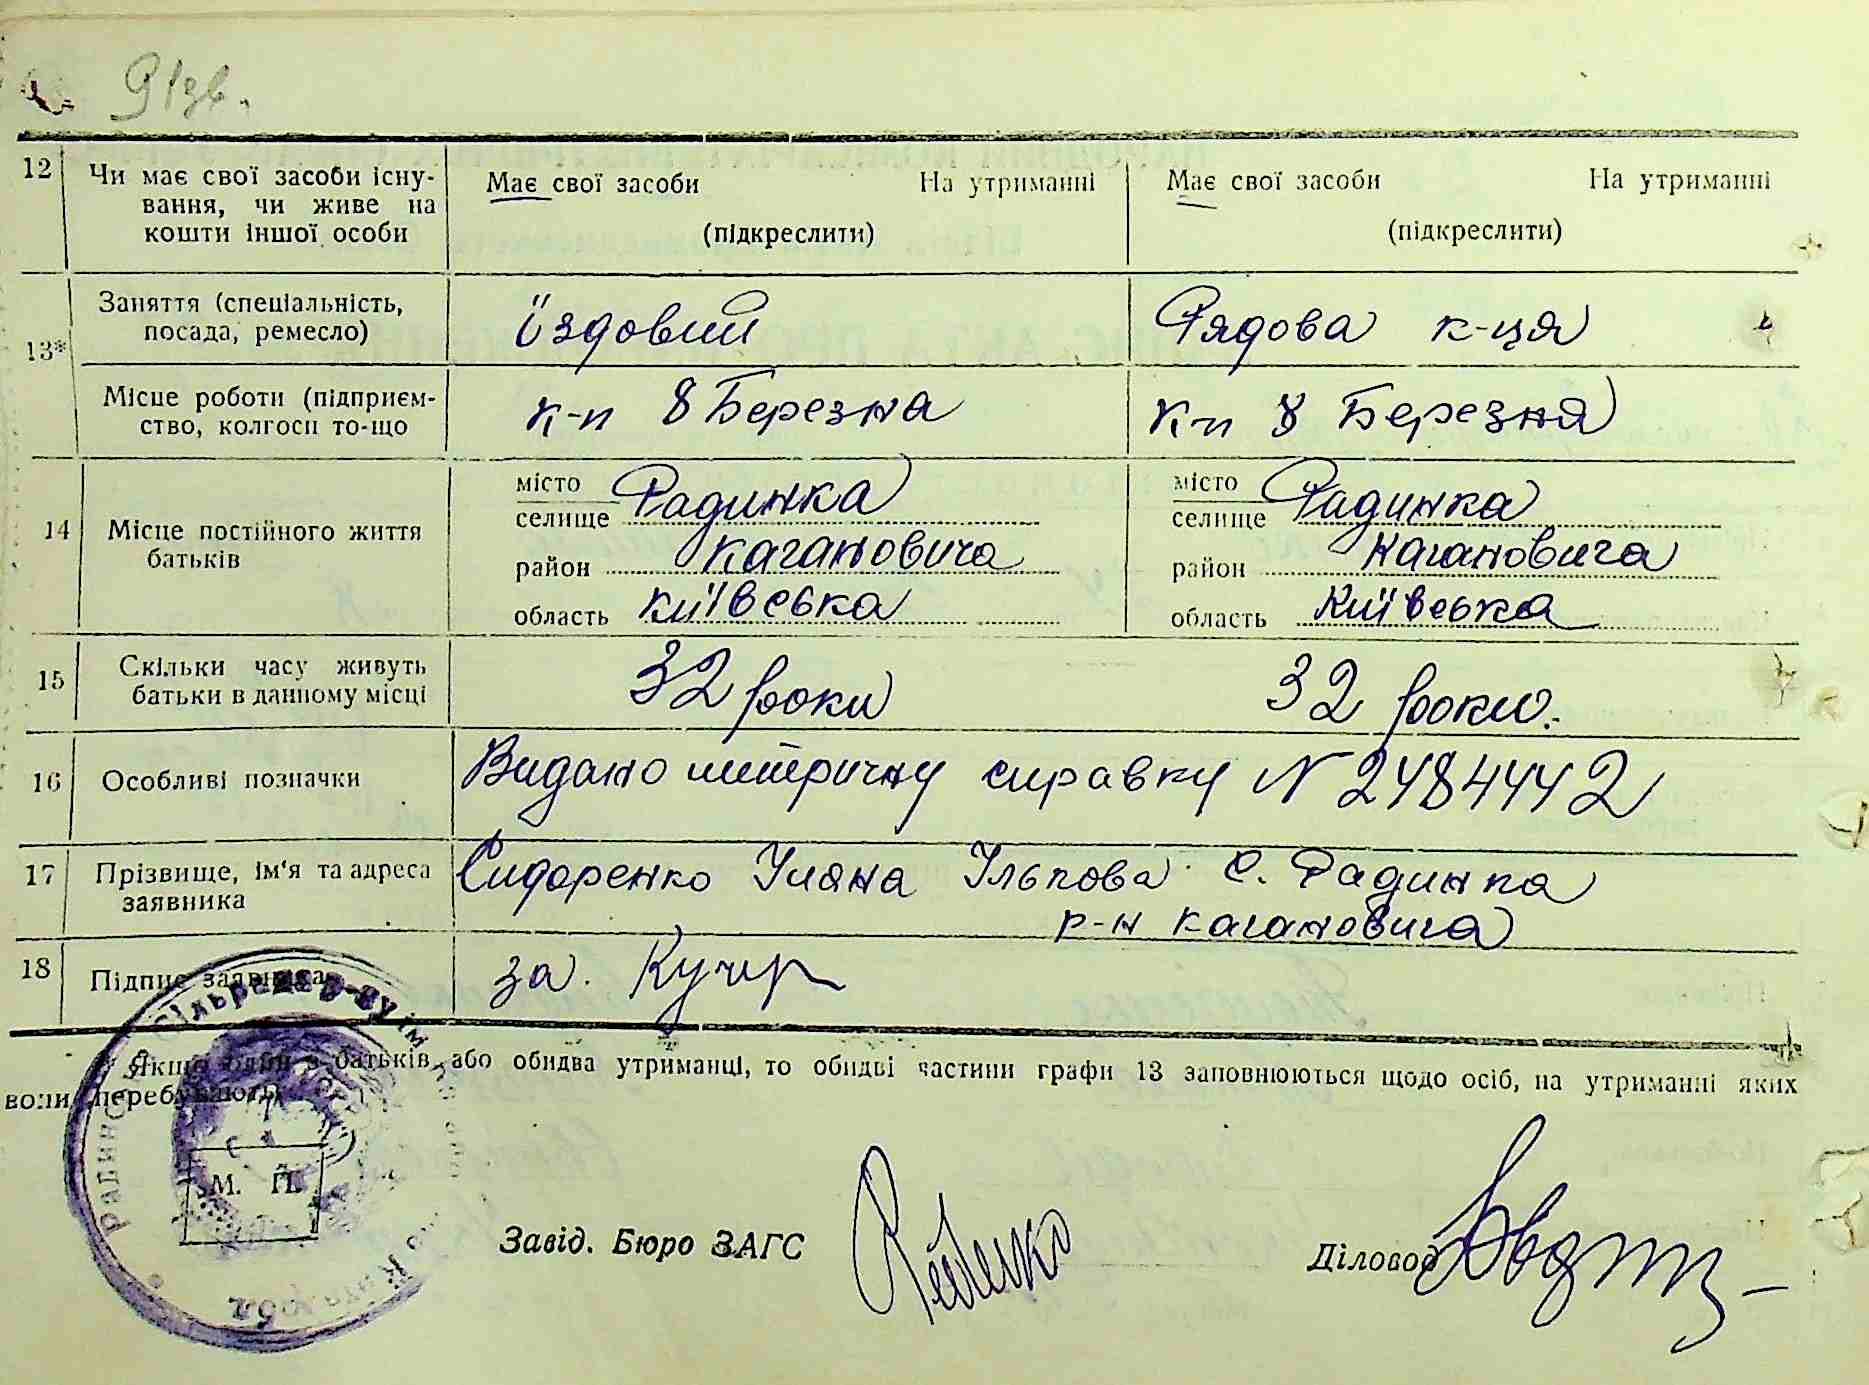 91зв.
12 Чи має свої засоби існу-
вання, чи живе на
кошти іншої особи
Має свої засоби На утриманні
(підкреслити)
Має свої засоби На утриманні
(підкреслити)
13*
Заняття (спеціальність,
посада, ремесло)
їздовий
Рядова к-ця
Місце роботи (підприєм-
ство, колгосп то-що
к-п 8 Березна
к-п 8 Березня
14 Місце постійного життя
батьків
місто
селище Радинка
район Кагановича
область Київська
місто
селище Радинка
район Кагановича
область Київська
15 Скільки часу живуть
батьки в данному місці
32 роки
32 роки.
16 Особливі позначки
Видано метричну справку N 2484442
17 Прізвище, ім'я та адреса
заявника
Сидоренко Уляна Ількова с. Радинка
р-н Кагановича
18 Підпис заявника
за. Кучер
* Якщо один з батьків або обидва утриманці, то обидві частини графи 13 заповнюються щодо осіб, на утриманні яких
вони перебувають
М. П.
Завід. Бюро ЗАГС
Діловод